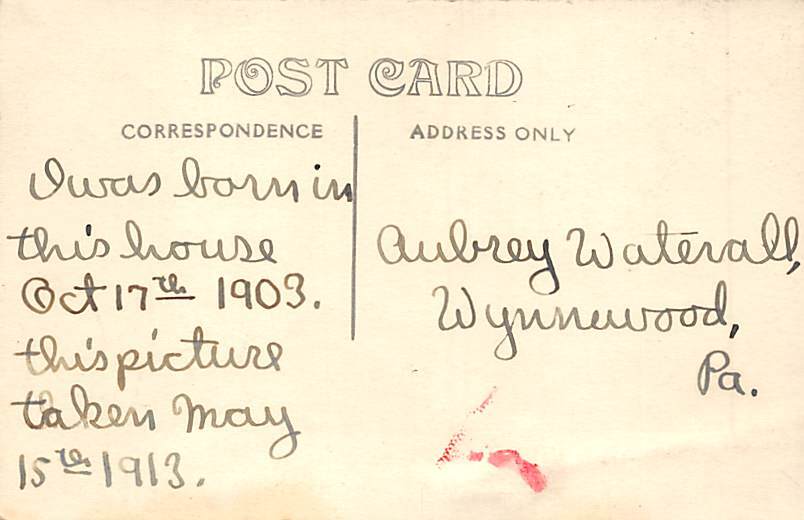 POST CARD
CORRESPONDENCE
ADDRESS ONLY
I was born in
this house
Oct 17th 1903.
this picture
taken May
15th 1913.
Aubrey Waterall,
Wynnewood,
Pa.